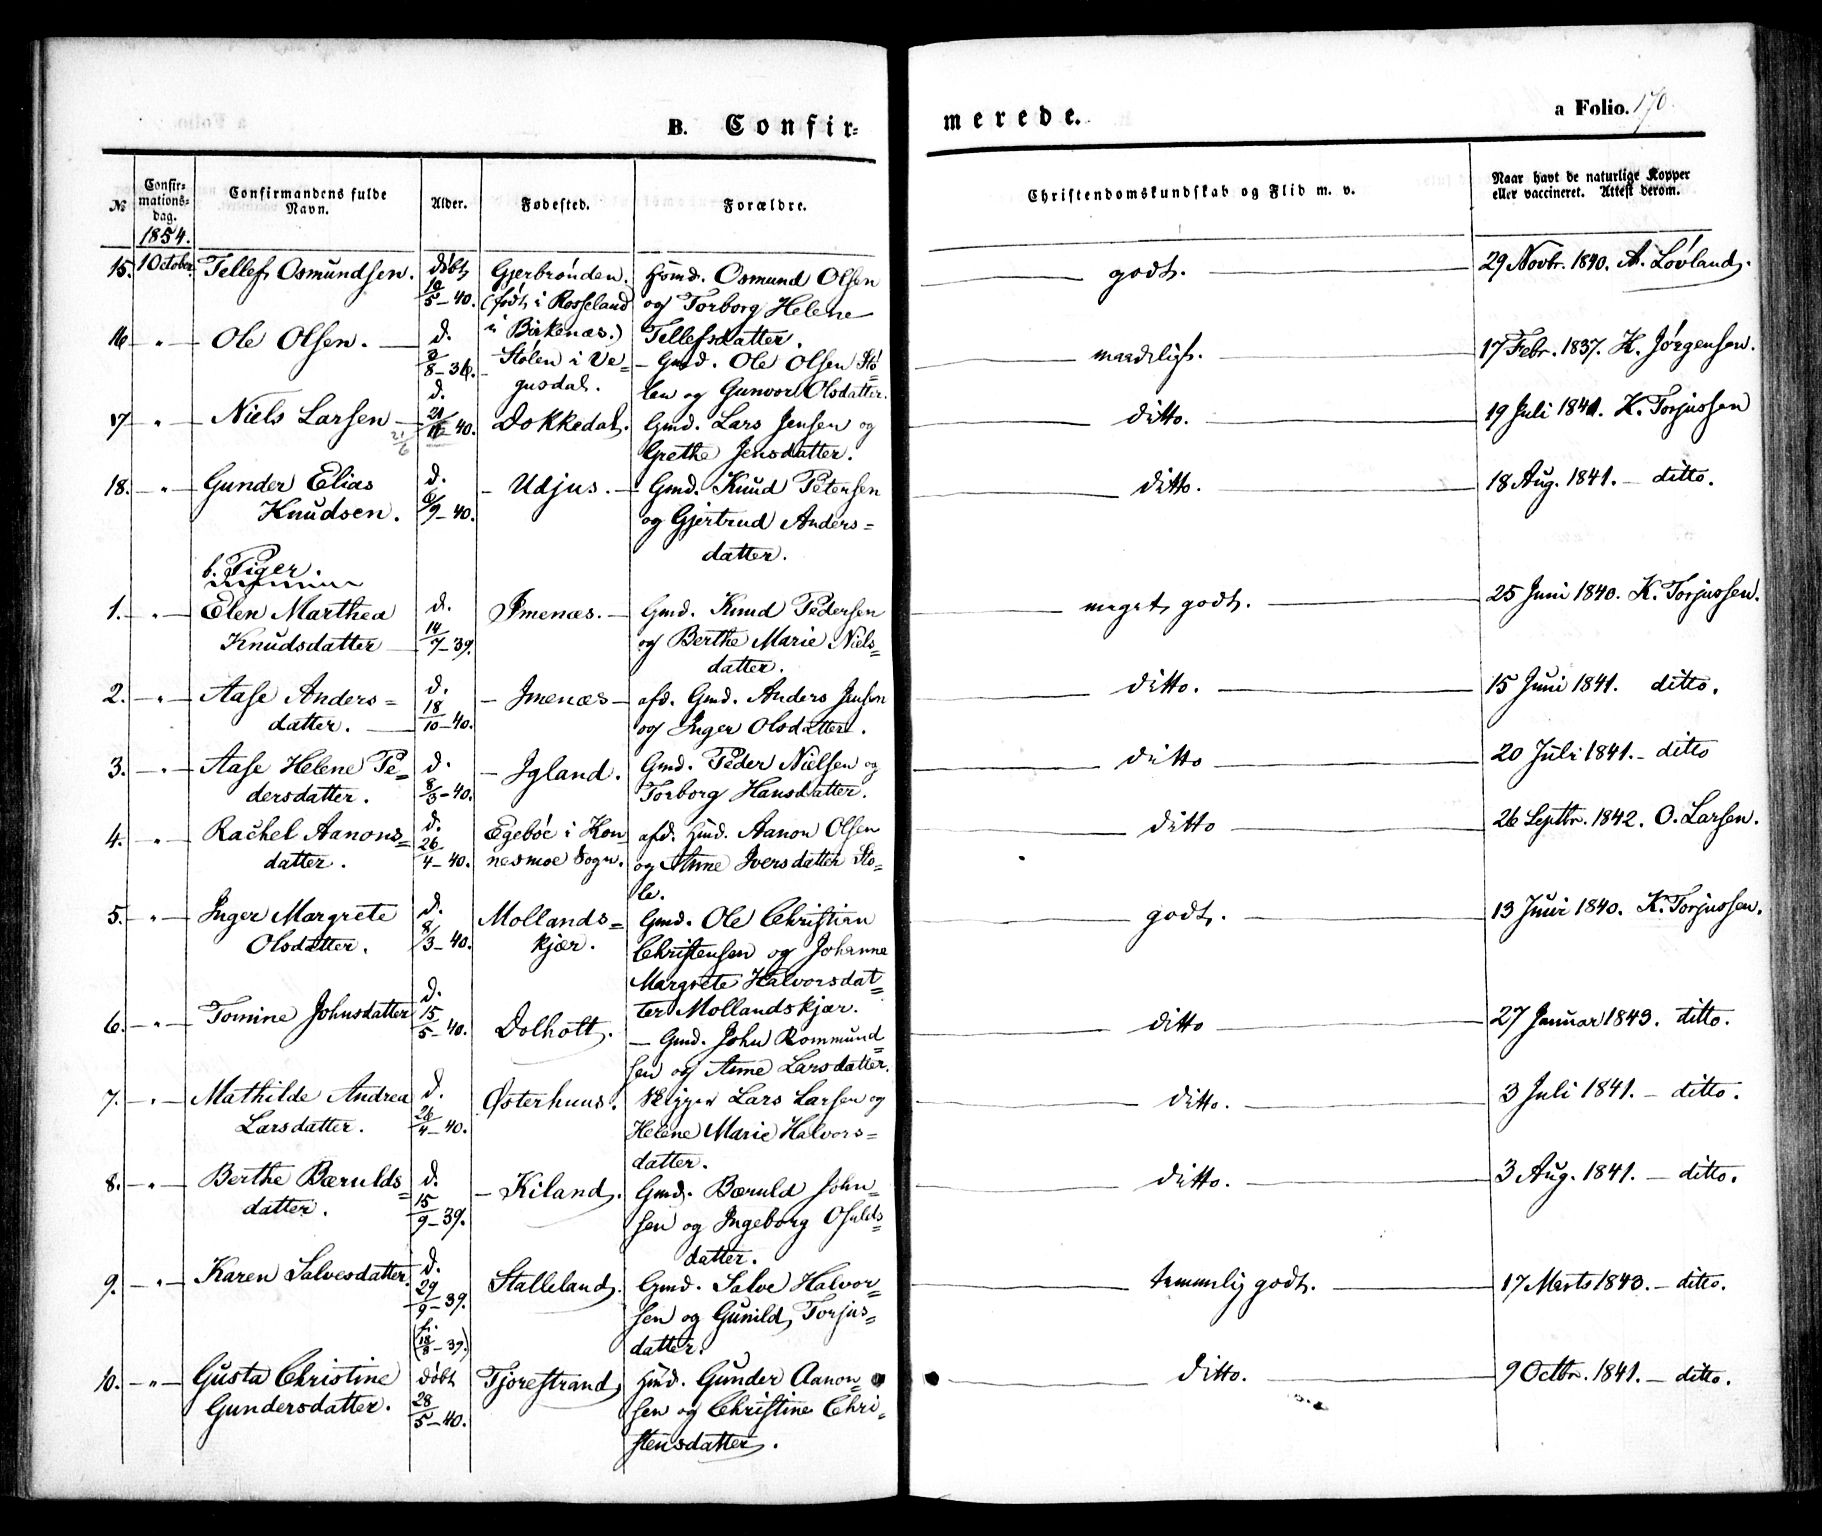 B. Confir=
merede.
a Folio. 170.
No
Confir=
mations=
dag.
1854.
Confirmandens fulde
Navn.
Alder.
Fødested.
Forældre.
Christendomskundskab og Flid m. v.
Naar havt de naturlige Kopper
eller vaccineret. Attest derom.
15. 1 October. Tellef Osmundsen. døbt 10/5-40. Gjerbrønden. (født i Rosseland i Birkenæs.) Hsmd. Osmund Olsen og Torborg Helene Tellefsdatter. godt. 29 Novbr. 1840. A. Løvland.
16 — " — Ole Olsen. d. 2/8-36. Stølen i Ve=gusdal. Gmd. Ole Olsen Stø=len og Gunvor Olsdatter. maadeligt. 17 Febr. 1837. H. Jørgensen.
17 — " — Niels Larsen 21/6 d. 40. Dokkedal. Gmd. Lars Jensen og Grethe Jensdatter. ditto. 19 Juli 1841. K. Torjussen
18. — " — Gunder Elias Knudsen. d. 6/9-40. Udjus. Gmd. Knud Petersen og Gjertrud Anders=datter. ditto. 18 Aug. 1841. — ditto.
b. Piger.
1. — " — Elen Marthea Knudsdatter d. 14/7-39. Imenæs. Gmd. Knud Pedersen og Berthe Marie Niels=datter. meget godt. 25 Juni 1840. K. Torjussen.
2. — " — Aase Anders=datter. d. 18/10-40. Imenæs afd. Gmd. Anders Jensen og Inger Olsdatter. ditto. 15 Juni 1841. ditto.
3. — " — Aase Helene Pe=dersdatter. d. 8/3-40. Igland. Gmd. Peder Nielsen og Torborg Hansdatter. ditto 20 Juli 1841. — ditto
4. — " — Rachel Aanons=datter. d. 26/4-40. Egebøe i Kon=nesmoe Sogn. afd. Hmd. Aanon Olsen og Anne Iversdatter Stø=le. ditto 26 Septbr. 1842. O. Larsen.
5. — " — Inger Margrete Olsdatter. d. 8/3-40. Mollands=kjær. Gmd. Ole Christian Christensen og Johanne Margrete Halvorsdat=ter Mollandskjær. godt. 13 Juni 1840. K. Torjussen.
6. — " — Tomine Johnsdatter d. 15/5-40. Dolholt. Gmd. John Rommund=sen og Anne Larsdatter. ditto 27 Januar 1843. ditto.
7. — " — Mathilde Andrea Larsdatter. d. 26/4-40. Østerhuus. Lars Larsen og Helene Marie Halvors=datter. ditto. 3 Juli 1841. — ditto.
8. — " — Berthe Bærulds=datter. d. 15/9-39. Kiland. Gmd. Bæruld John=sen og Ingeborg Osulds=datter. ditto. 3 Aug. 1841. — ditto.
9. — " — Karen Salvesdatter. d. 29/9-39. (f. 18/8-39) Stalleland. Gmd. Salve Halvor=sen og Gunild Torjus=datter. temmelig godt. 17 Marts 1843. — ditto.
10. — " — Gusta Christine Gundersdatter. døbt 28/5-40. Tjorestrand Hmd. Gunder Aanon=sen og Christine Chri=stensdatter. ditto. 9 Octbr. 1841. — ditto.